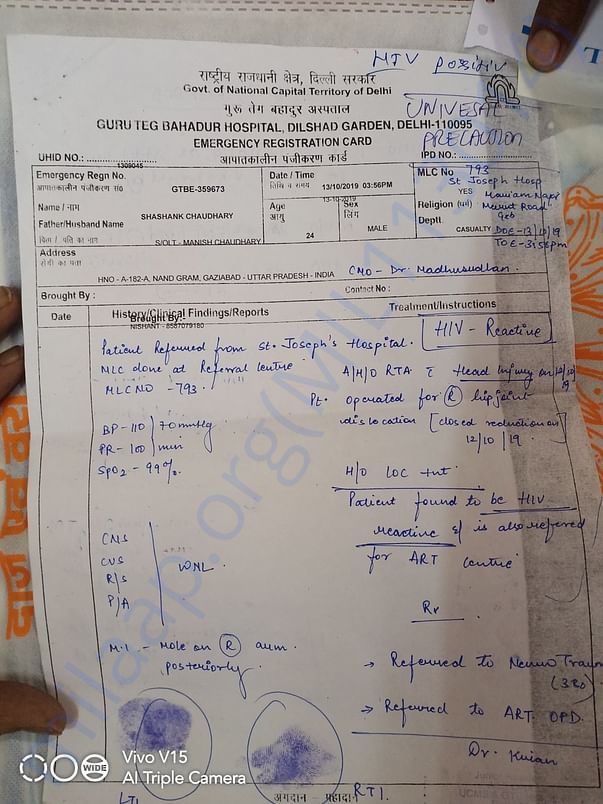 HIV Positive
राष्ट्रीय राजधानी क्षेत्र, दिल्ली सरकार
Govt. of National Capital Territory of Delhi
गुरू तेग बहादुर अस्पताल
UNIVESAL
GURU TEG BAHADUR HOSPITAL, DILSHAD GARDEN, DELHI-110095
PRECAUTION
EMERGENCY REGISTRATION CARD
UHID NO.: 1309045
आपातकालीन पंजीकरण कार्ड
IPD NO.:
Emergency Regn No.
आपातकालीन पंजीकरण सं०
GTBE-359673
Date / Time
तिथि व समय
13/10/2019 03:56PM
13-10-2019
MLC No 793
St Joseph Hosp
YES Mariam Nagar
Name / नाम
SHASHANK CHAUDHARY
Age
आयु
24
Sex
लिंग
MALE
Religion (धर्म) Meerut Road
Deptt. GZB
CASUALTY DOE-13/10/19
TOE-3:56pm
Father/Husband Name
पिता / पति का नाम
S/OLT.- MANISH CHAUDHARY
Address
रोगी का पता
HNO - A-182-A, NAND GRAM, GAZIABAD - UTTAR PRADESH - INDIA
CMO - Dr. Madhusudhan.
Brought By :
Contact No :
Date
History/Clinical Findings/Reports
Treatment/Instructions
Brought By:
NISHANT - 8587079180
HIV - Reactive
Patient Referred from St. Joseph's Hospital.
MLC done at Referral centre
MLC NO - 793.
A/H/O RTA c Head Injury on 12/10/19
Pt. operated for R hip joint
dislocation [closed reduction on]
12/10/19.
BP - 110/70 mmHg
PR - 100/min
SPO2 - 99%.
H/O LOC +nt.
Patient found to be HIV
reactive & is also referred
for ART centre
CNS
CVS
R/S
P/A
WNL.
Rx
M.I. - Mole on R arm
posteriorly.
→ Referred to Neuro Trauma
→ Referred to ART OPD.
LTI
RTI
अंगदान - महादान
milaap.org
Vivo V15
WIDE
AI Triple Camera